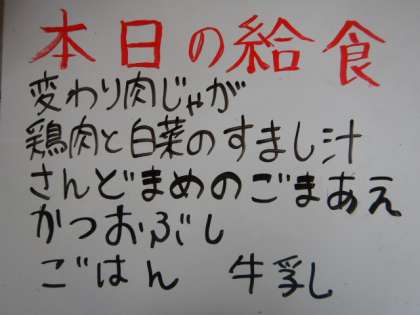 本日の給食
変わり肉じゃが
鶏肉と白菜のすまし汁
さんどまめのごまあえ
かつおぶし
ごはん 牛乳し